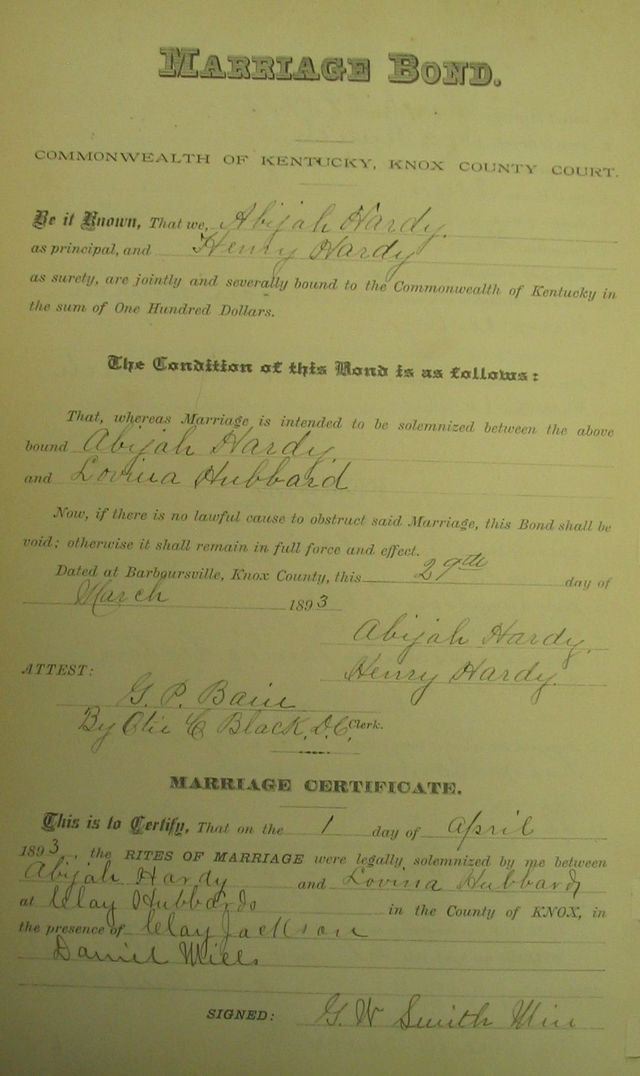 MARRIAGE BOND.
COMMONWEALTH OF KENTUCKY, KNOX COUNTY COURT.
Be it Known, That we, Abijah Hardy.
as principal, and Henry Hardy
as surety, are jointly and severally bound to the Commonwealth of Kentucky in
the sum of One Hundred Dollars.
The Condition of this Bond is as follows:
That, whereas Marriage is intended to be solemnized between the above
bound Abijah Hardy
and Lovina Hubbard
Now, if there is no lawful cause to obstruct said Marriage, this Bond shall be
void; otherwise it shall remain in full force and effect.
Dated at Barboursville, Knox County, this 29th day of
March 1893
Abijah Hardy.
ATTEST: Henry Hardy.
G. P. Bain
By Otie C Black, D.C. Clerk.
MARRIAGE CERTIFICATE.
This is to Certify, That on the 1 day of April
1893, the RITES OF MARRIAGE were legally solemnized by me between
Abijah Hardy and Lovina Hubbard
at Clay Hubbards in the County of KNOX, in
the presence of Clay Jackson
Daniel Mills
SIGNED: G. W Smith Min